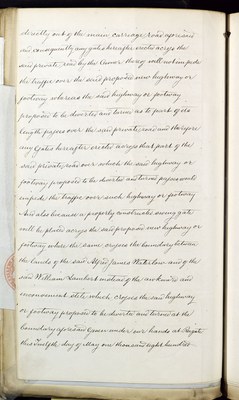 directly out of the main carriage road aforesaid
and consequently any gates hereafter erected across the
said private road by the Owner thereof will not impede
the traffic over the said proposed new highway or
footway whereas the said highway or footway
proposed to be diverted and turned as to part of its
length passes over the said private road and therefore
any Gates hereafter erected across that part of the
said private road over which the said highway or
footway proposed to be diverted and turned passes would
impede the traffic over such highway or footway
And also because a properly constructed swing gate
will be placed across the said proposed new highway or
footway where the same crosses the boundary between
the lands of the said Alfred James Waterlow and of the
said William Lambert instead of the awkward and
inconvenient stile which crosses the said highway
or footway proposed to be diverted and turned at the
boundary aforesaid Given under our hands at Reigate
this Twelfth day of May one thousand eight hundred